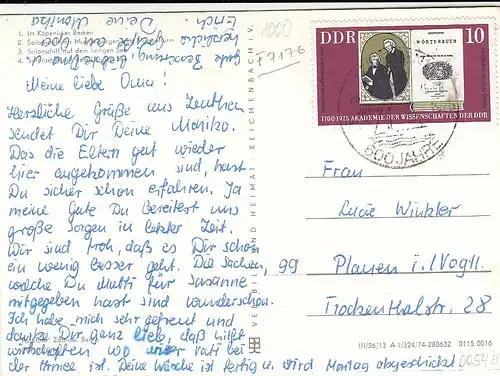 1. Im Köpenicker Becken
2.
3. Salonschiff auf dem Langen See
4.
gute Besserung
herzliche Grüße von
Erich. Deine Monika
Meine liebe Oma!
Herzliche Grüße aus Zeuthen
sendet Dir Deine Monika.
Das die Eltern gut wieder
hier angekommen sind, hast
Du sicher schon erfahren. Ja
meine Gute Du bereitest uns
große Sorgen in letzter Zeit.
Wir sind froh, daß es Dir schon
ein wenig besser geht. Die Sachen,
welche Du Mutti für Susanne
mitgegeben hast sind wunderschön.
Ich habe mich sehr gefreut und
danke Dir ganz lieb, daß hilft
wirtschaften wo unser Vati bei
der Armee ist. Deine Wäsche ist fertig u. wird Montag abgeschickt
1000
F 7176
VERLAG BILD UND HEIMAT REICHENBACH I. V.
DDR
WÖRTERBUCH
10
1700·1975 AKADEMIE DER WISSENSCHAFTEN DER DDR
600 JAHRE
Frau
Lucie Winkler
99 Plauen i./Vogtl.
Trockentalstr. 28
III/26/13 A 1/324/74-280632 0115 0016